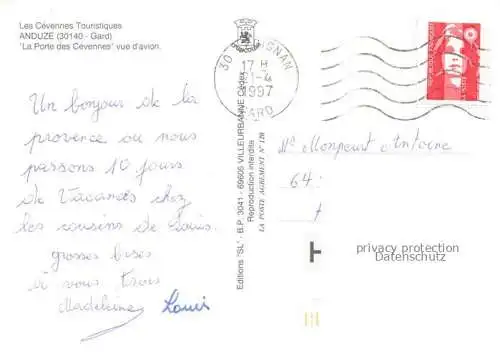 Les Cévennes Touristiques
ANDUZE (30140 - Gard)
"La Porte des Cévennes" vue d'avion.
Un bonjour de la
provence ou nous
passons 10 jours
de Vacances chez
les cousins de Louis.
grosses bises
à vous trois
Madeleine Louis
Editions "SL" - B.P. 3041 - 69605 VILLEURBANNE Cedex
Reproduction interdite
LA POSTE AGREMENT N° 120
17 H
1-4
1997
GARD
Antoine
64
privacy protection
Datenschutz